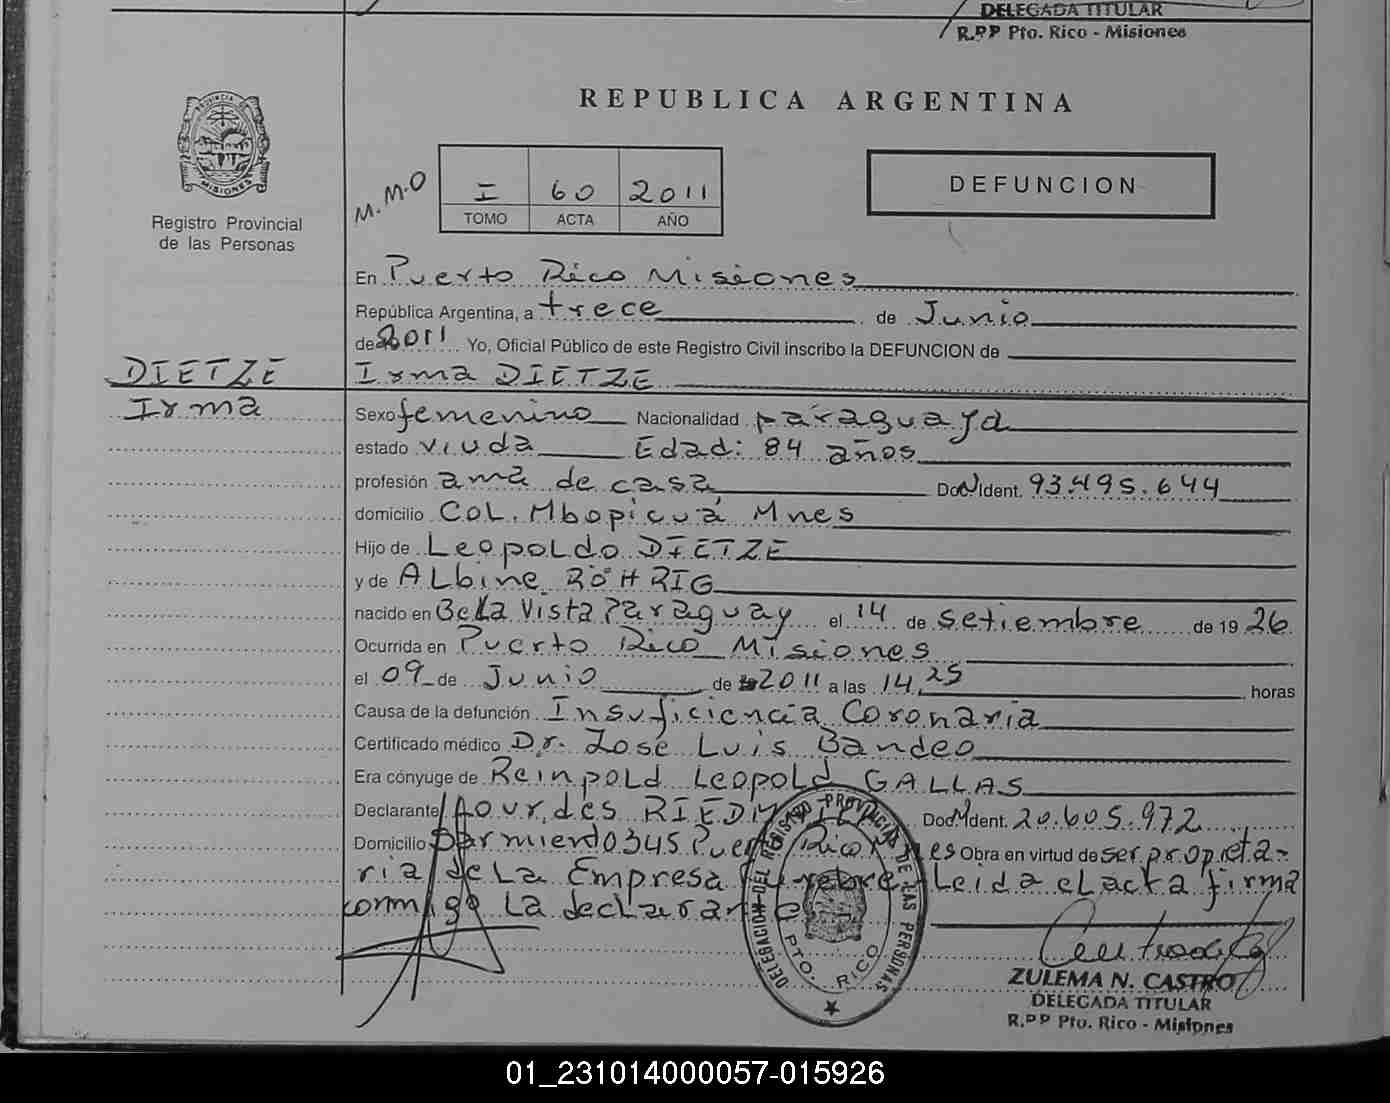 DELEGADA TITULAR
R.PP Pto. Rico - Misiones
REPUBLICA ARGENTINA
PROVINCIA DE
MISIONES
Registro Provincial
de las Personas
M.M.O
I 60 2011
TOMO ACTA AÑO
DEFUNCION
En Puerto Rico Misiones
República Argentina, a trece de Junio
de 2011 Yo, Oficial Público de este Registro Civil inscribo la DEFUNCION de
DIETZE
Irma DIETZE
Irma
Sexo femenino Nacionalidad paraguaya
estado viuda Edad: 84 años
profesión ama de casa Doc. N Ident. 93.495.644
domicilio Col. Mbopicuá Mnes
Hijo de Leopoldo DIETZE
y de Albine RÖHRIG
nacido en Bella Vista Paraguay el 14 de setiembre de 19 26
Ocurrida en Puerto Rico Misiones
el 09 de Junio de 2011 a las 14,25 horas
Causa de la defunción Insuficiencia Coronaria
Certificado médico Dr. José Luis Bandeo
Era cónyuge de Reinpold Leopold GALLAS
Declarante Lourdes Doc. N Ident. 20.605.972
Domicilio Sarmiento 345 Puerto Rico Mnes Obra en virtud de ser propieta-
ria de La Empresa Funebre. Leida el acta firma
conmigo La declarante
DELEGACION DEL REGISTRO PROVINCIAL DE LAS PERSONAS
PTO. RICO
ZULEMA N. CASTRO
DELEGADA TITULAR
R.PP Pto. Rico - Misiones
01_231014000057-015926